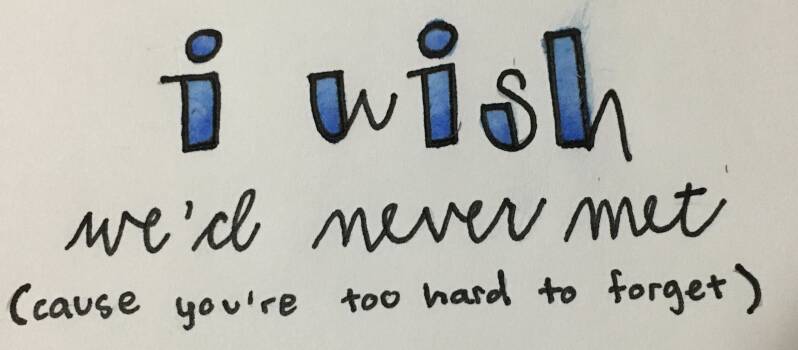 i wish
we'd never met
(cause you're too hard to forget)